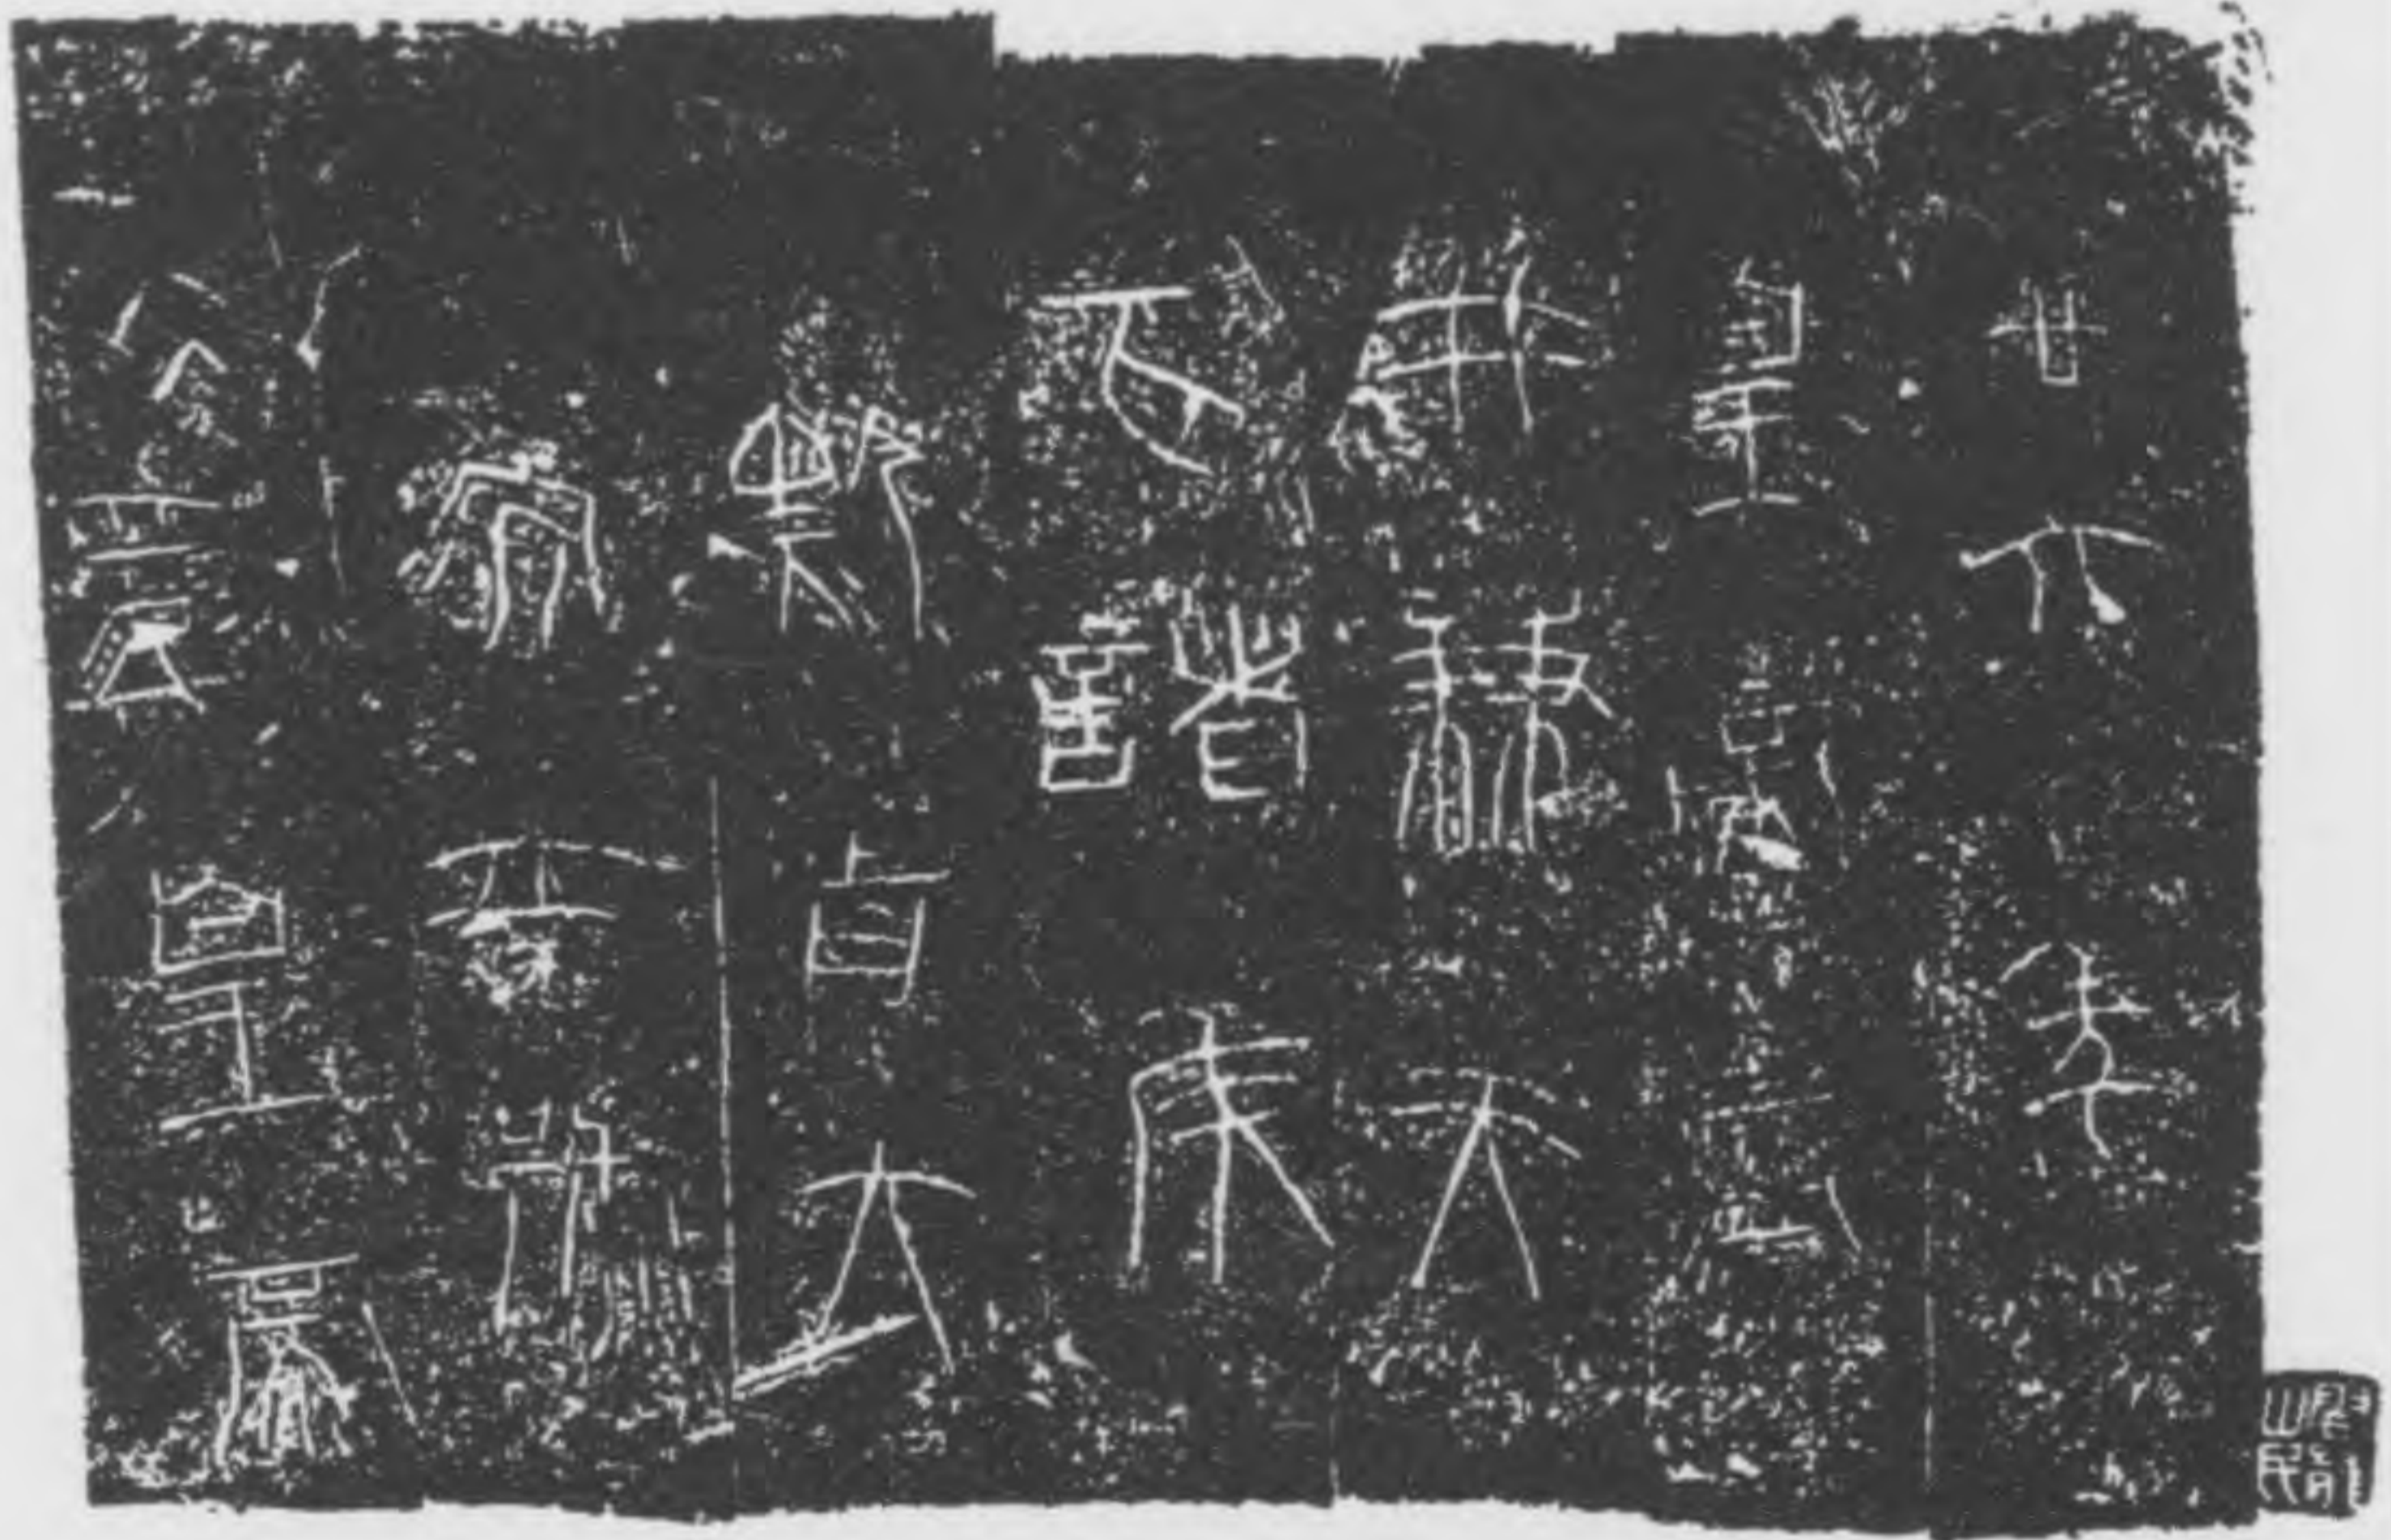 廿六年
皇帝盡
并兼天
下諸侯
黔首大
安立號
爲皇帝